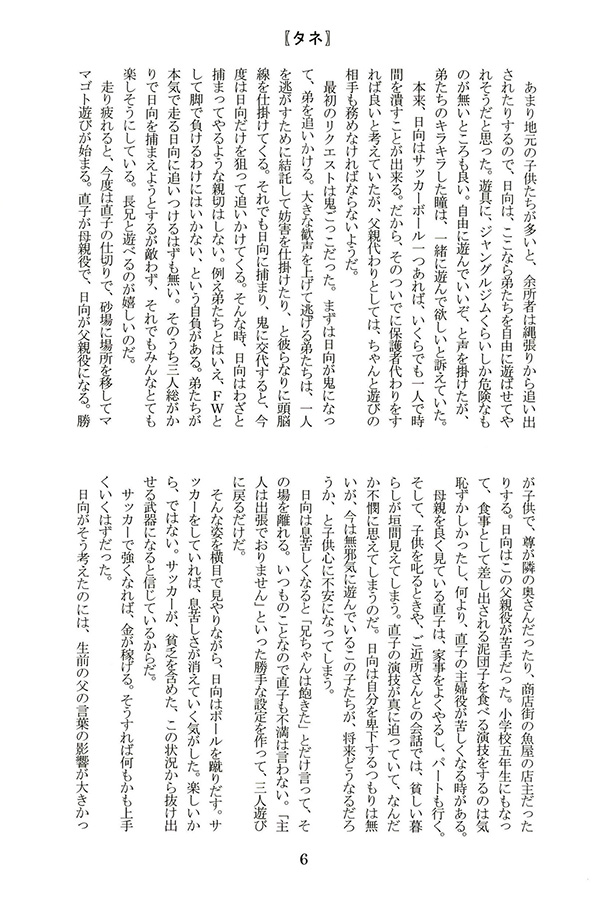 〖タネ〗
　あまり地元の子供たちが多いと、余所者は縄張りから追い出
されたりするので、日向は、ここなら弟たちを自由に遊ばせてや
れそうだと思った。遊具に、ジャングルジムくらいしか危険なも
のが無いところも良い。自由に遊んでいいぞ、と声を掛けたが、
弟たちのキラキラした瞳は、一緒に遊んで欲しいと訴えていた。
　本来、日向はサッカーボール一つあれば、いくらでも一人で時
間を潰すことが出来る。だから、そのついでに保護者代わりをす
れば良いと考えていたが、父親代わりとしては、ちゃんと遊びの
相手も務めなければならないようだ。
　最初のリクエストは鬼ごっこだった。まずは日向が鬼になっ
て、弟を追いかける。大きな歓声を上げて逃げる弟たちは、一人
を逃がすために結託して妨害を仕掛けたり、と彼らなりに頭脳
線を仕掛けてくる。それでも日向に捕まり、鬼に交代すると、今
度は日向だけを狙って追いかけてくる。そんな時、日向はわざと
捕まってやるような親切はしない。例え弟たちとはいえ、ＦＷと
して脚で負けるわけにはいかない、という自負がある。弟たちが
本気で走る日向に追いつけるはずも無い。そのうち三人総がか
りで日向を捕まえようとするが敵わず、それでもみんなとても
楽しそうにしている。長兄と遊べるのが嬉しいのだ。
　走り疲れると、今度は直子の仕切りで、砂場に場所を移してマ
マゴト遊びが始まる。直子が母親役で、日向が父親役になる。勝
が子供で、尊が隣の奥さんだったり、商店街の魚屋の店主だった
りする。日向はこの父親役が苦手だった。小学校五年生にもなっ
て、食事として差し出される泥団子を食べる演技をするのは気
恥ずかしかったし、何より、直子の主婦役が苦しくなる時がある。
　母親を良く見ている直子は、家事をよくやるし、パートも行く。
そして、子供を叱るときや、ご近所さんとの会話では、貧しい暮
らしが垣間見えてしまう。直子の演技が真に迫っていて、なんだ
か不憫に思えてしまうのだ。日向は自分を卑下するつもりは無
いが、今は無邪気に遊んでいるこの子たちが、将来どうなるだろ
うか、と子供心に不安になってしまう。
　日向は息苦しくなると「兄ちゃんは飽きた」とだけ言って、そ
の場を離れる。いつものことなので直子も不満は言わない。「主
人は出張でおりません」といった勝手な設定を作って、三人遊び
に戻るだけだ。
　そんな姿を横目で見やりながら、日向はボールを蹴りだす。サ
ッカーをしていれば、息苦しさが消えていく気がした。楽しいか
ら、ではない。サッカーが、貧乏を含めた、この状況から抜け出
せる武器になると信じているからだ。
　サッカーで強くなれば、金が稼げる。そうすれば何もかも上手
くいくはずだった。
　日向がそう考えたのには、生前の父の言葉の影響が大きかっ
6